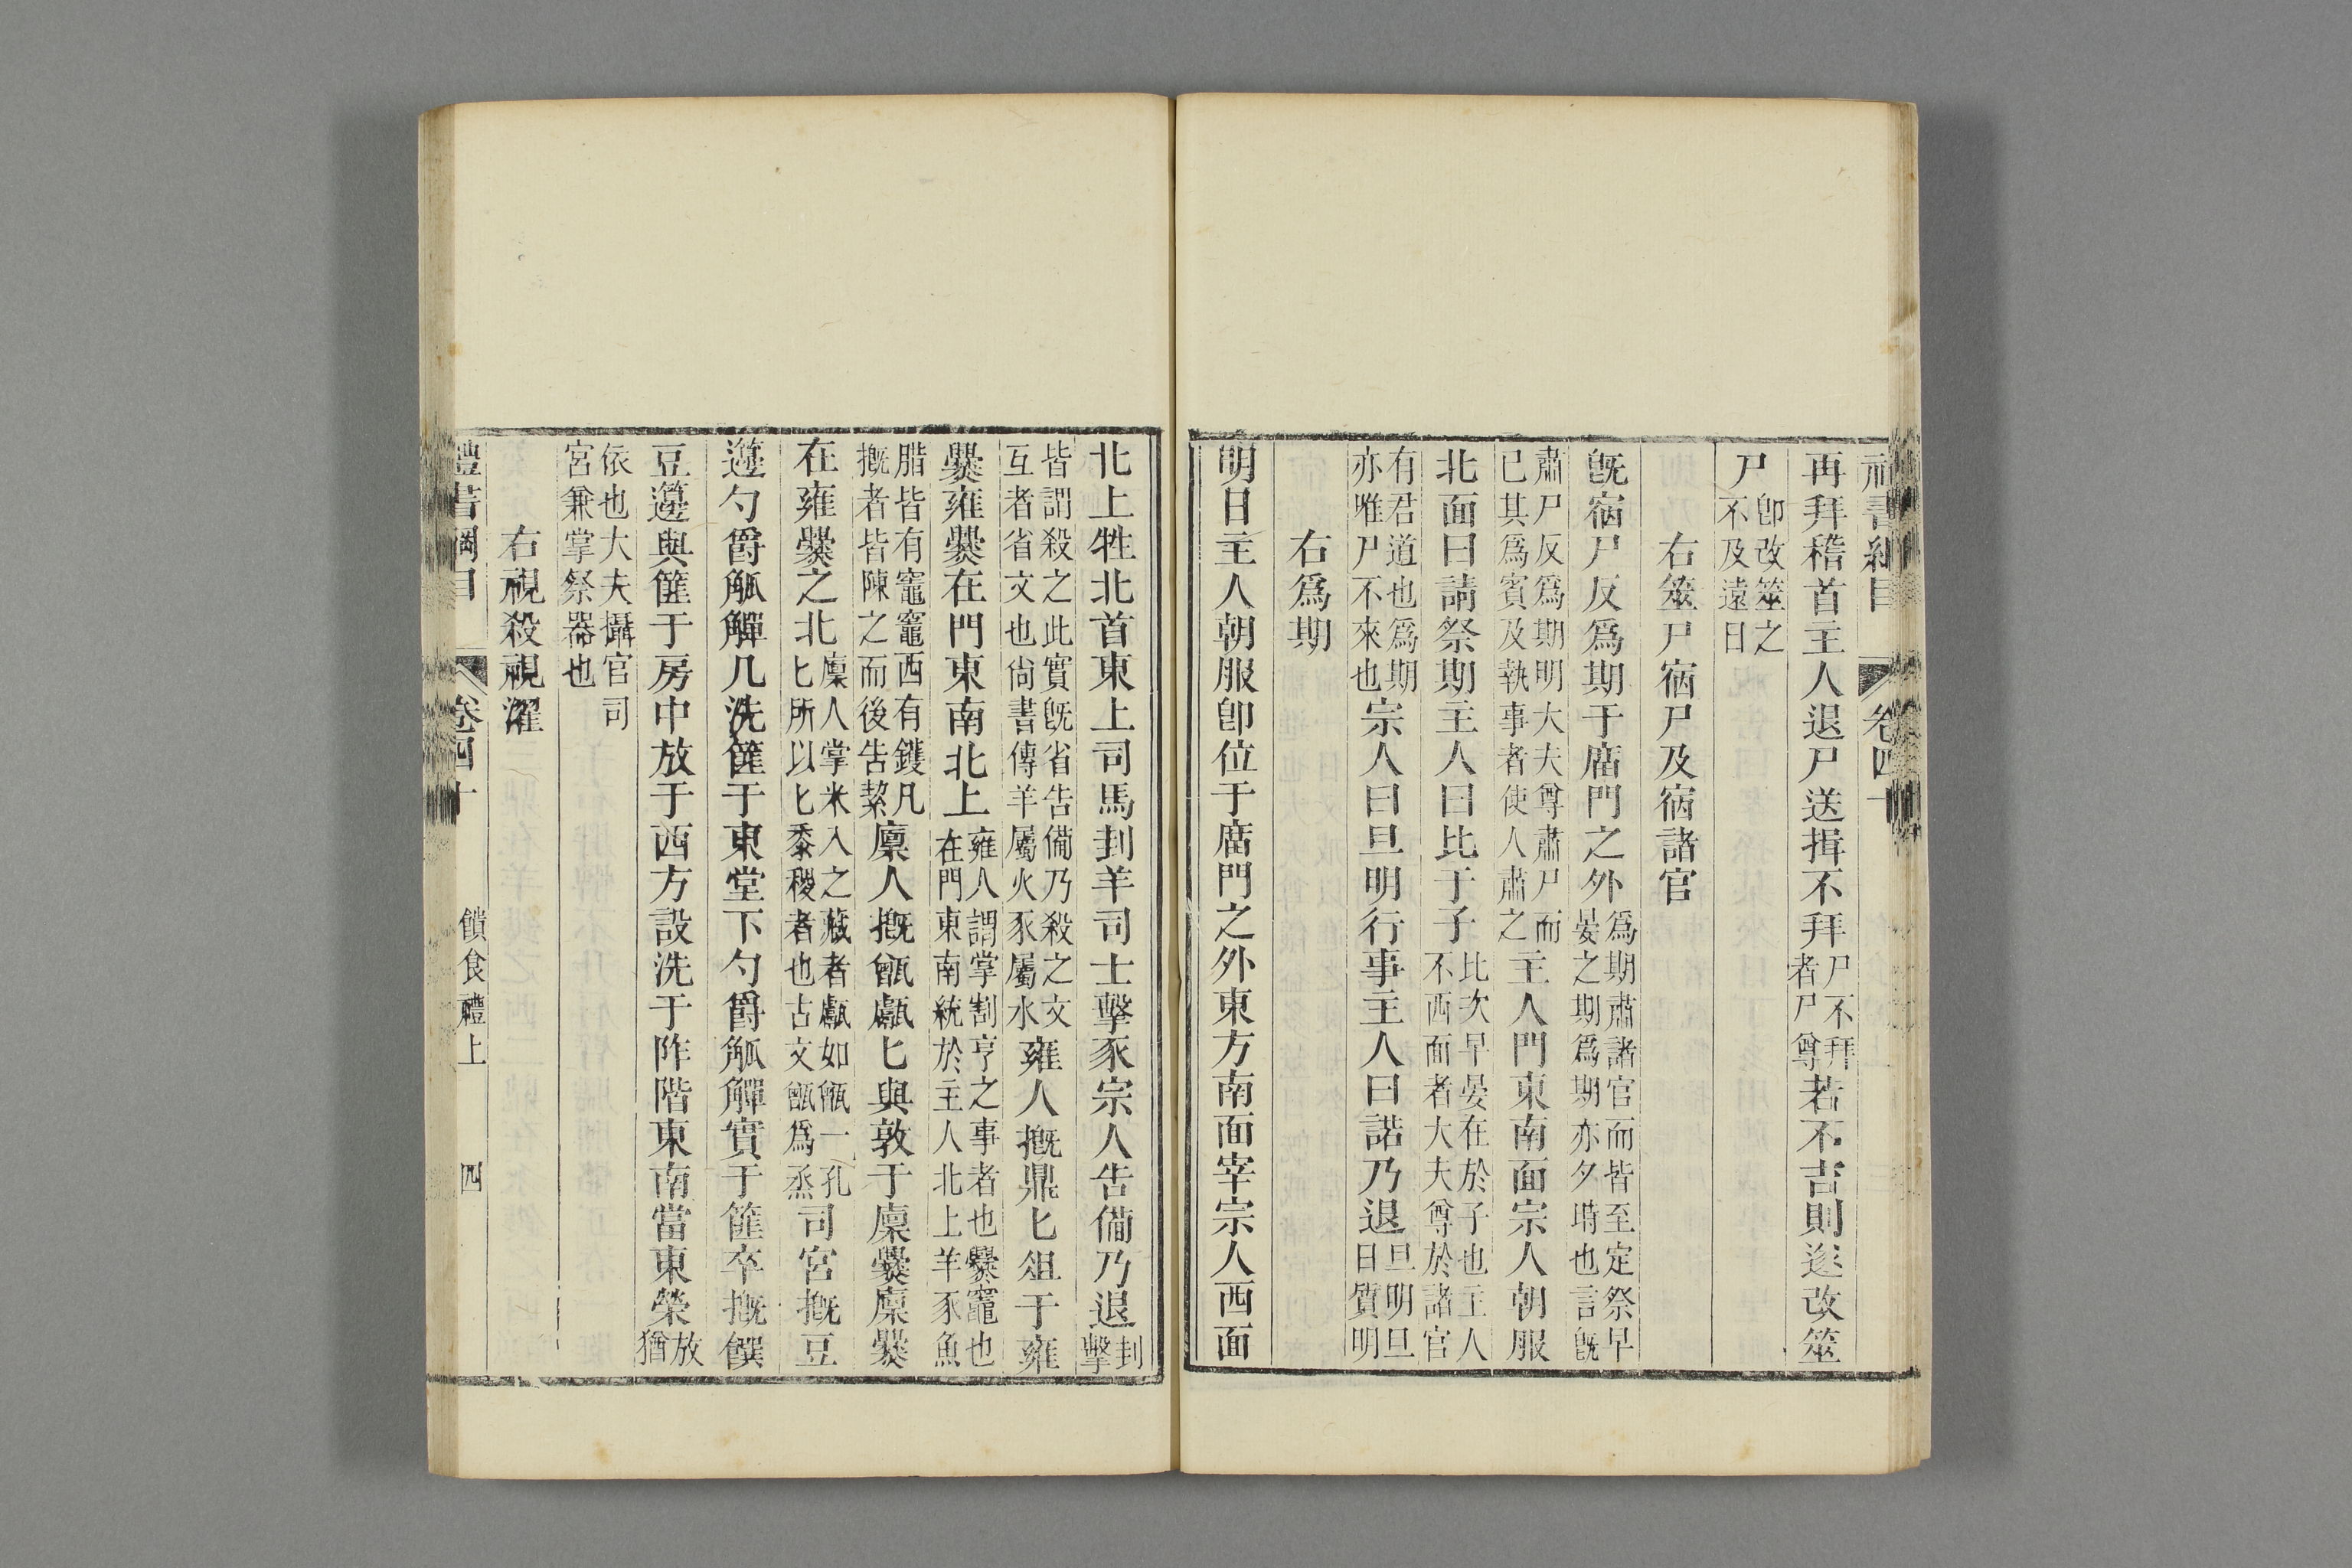 禮書綱目 卷四十
再拜稽首主人退尸送揖不拜尸不拜者尸尊若不吉則遂改筮
尸卽改筮之不及遠日
右筮尸宿尸及宿諸官
旣宿尸反爲期于廟門之外爲期肅諸官而皆至定祭早晏之期爲期亦夕時也言旣
肅尸反爲期明大夫尊肅尸而已其爲賓及執事者使人肅之主人門東南面宗人朝服
北面曰請祭期主人曰比于子比次早晏在於子也主人不西面者大夫尊於諸官
有君道也爲期亦唯尸不來也宗人曰旦明行事主人曰諾乃退旦明旦日質明
右爲期
明日主人朝服卽位于廟門之外東方南面宰宗人西面
北上牲北首東上司馬刲羊司士擊豕宗人告備乃退刲擊
皆謂殺之此實旣省告備乃殺之文互者省文也尙書傳羊屬火豕屬水雍人摡鼎匕俎于雍
爨雍爨在門東南北上雍人謂掌割亨之事者也爨竈也在門東南統於主人北上羊豕魚
腊皆有竈竈西有鑊凡摡者皆陳之而後告絜廩人摡甑甗匕與敦于廩爨廩爨
在雍爨之北廩人掌米入之藏者甗如甑一孔匕所以匕黍稷者也古文甑爲烝司宮摡豆
籩勺爵觚觶几洗篚于東堂下勺爵觚觶實于篚卒摡饌
豆籩與篚于房中放于西方設洗于阼階東南當東榮放猶
依也大夫攝官司宮兼掌祭器也
右視殺視濯
禮書綱目 卷四十 饋食禮上 四